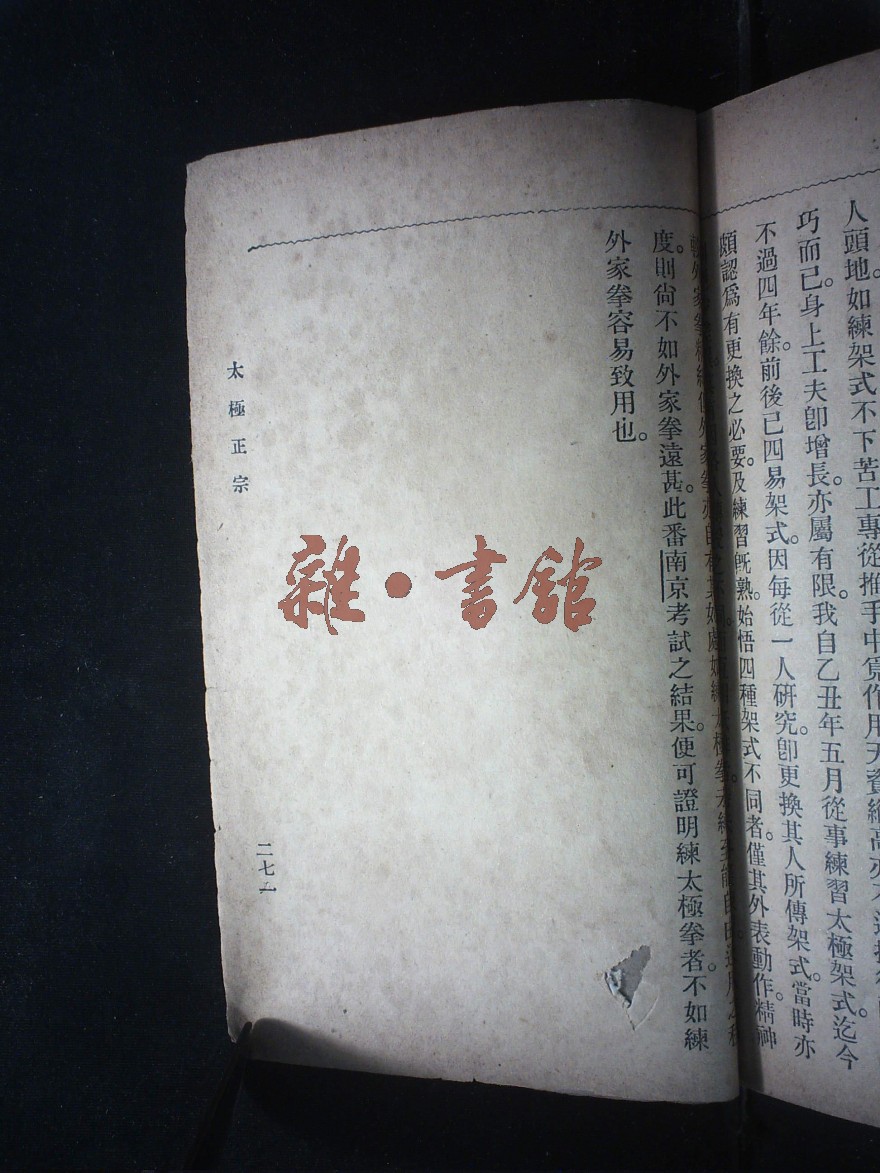 人頭地。如練架式不下苦工專從推手中覓作用天資縱高亦不過
巧而已。身上工夫卽增長。亦屬有限。我自乙丑年五月從事練習太極架式。迄今
不過四年餘。前後已四易架式。因每從一人研究。卽更換其人所傳架式。當時亦
頗認爲有更換之必要。及練習旣熟。始悟四種架式不同者。僅其外表動作。精神
外家拳
度。則尙不如外家拳遠甚。此番南京考試之結果。便可證明練太極拳者。不如練
外家拳容易致用也。
太極正宗
二七一
雜·書館